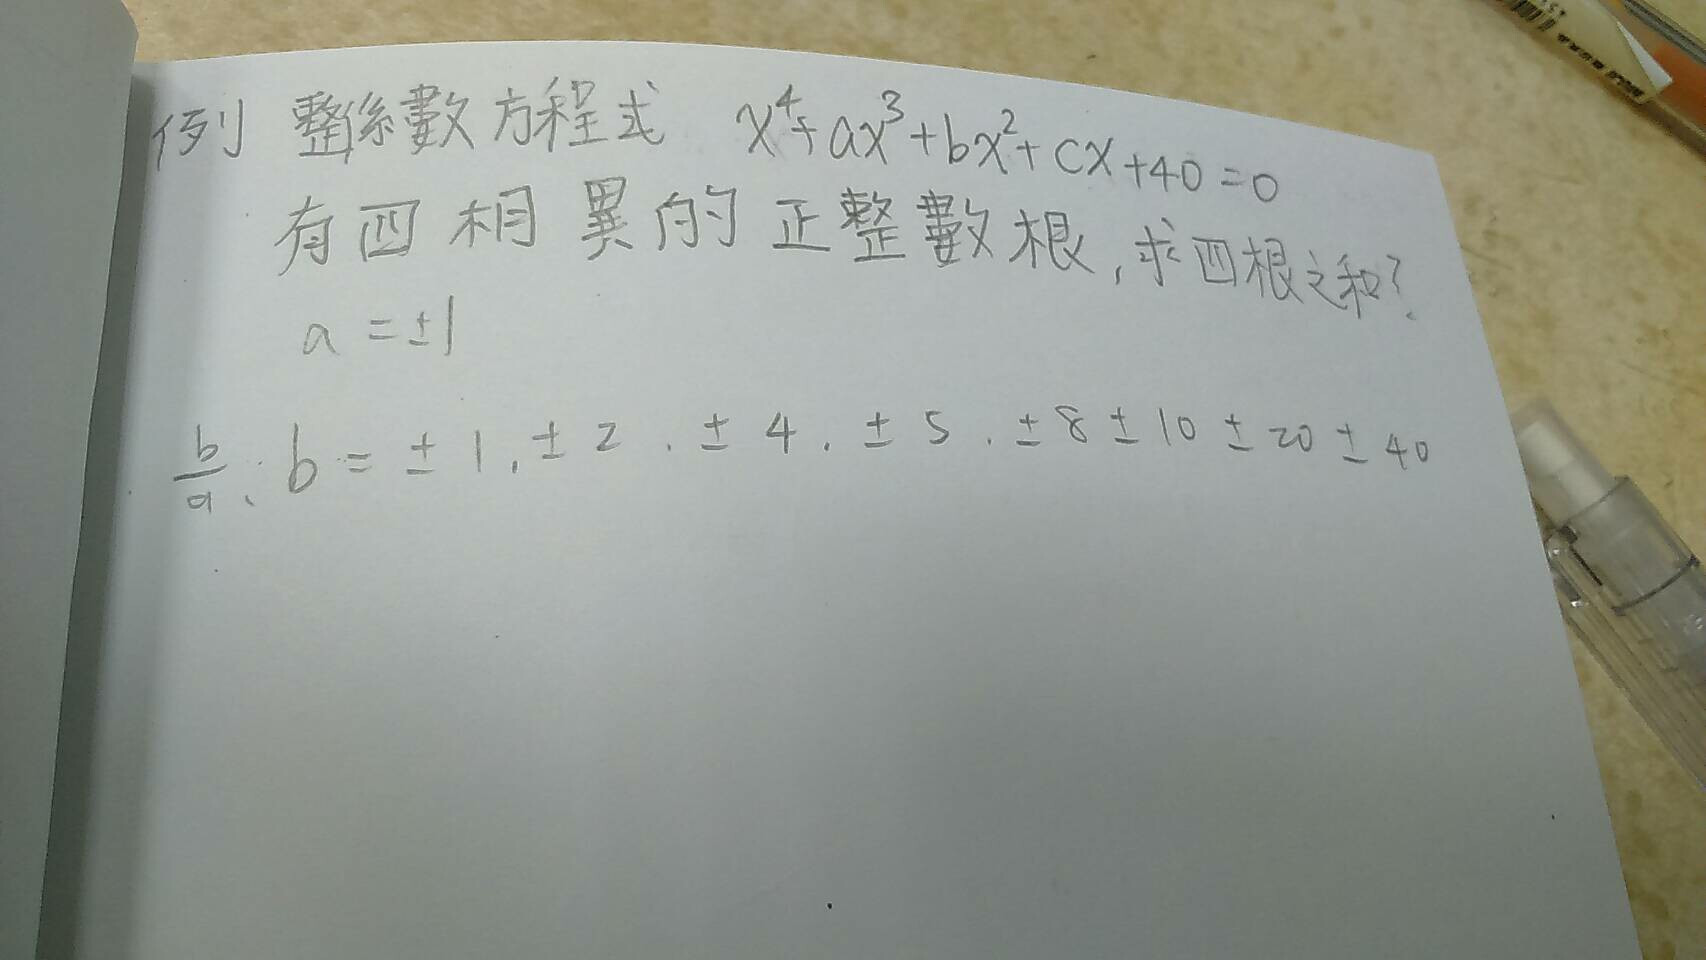 例 整係數方程式 x⁴+ax³+bx²+cx+40=0
有四相異的正整數根,求四根之和?
a=±1
b/a: b=±1,±2.±4.±5.±8±10±20±40